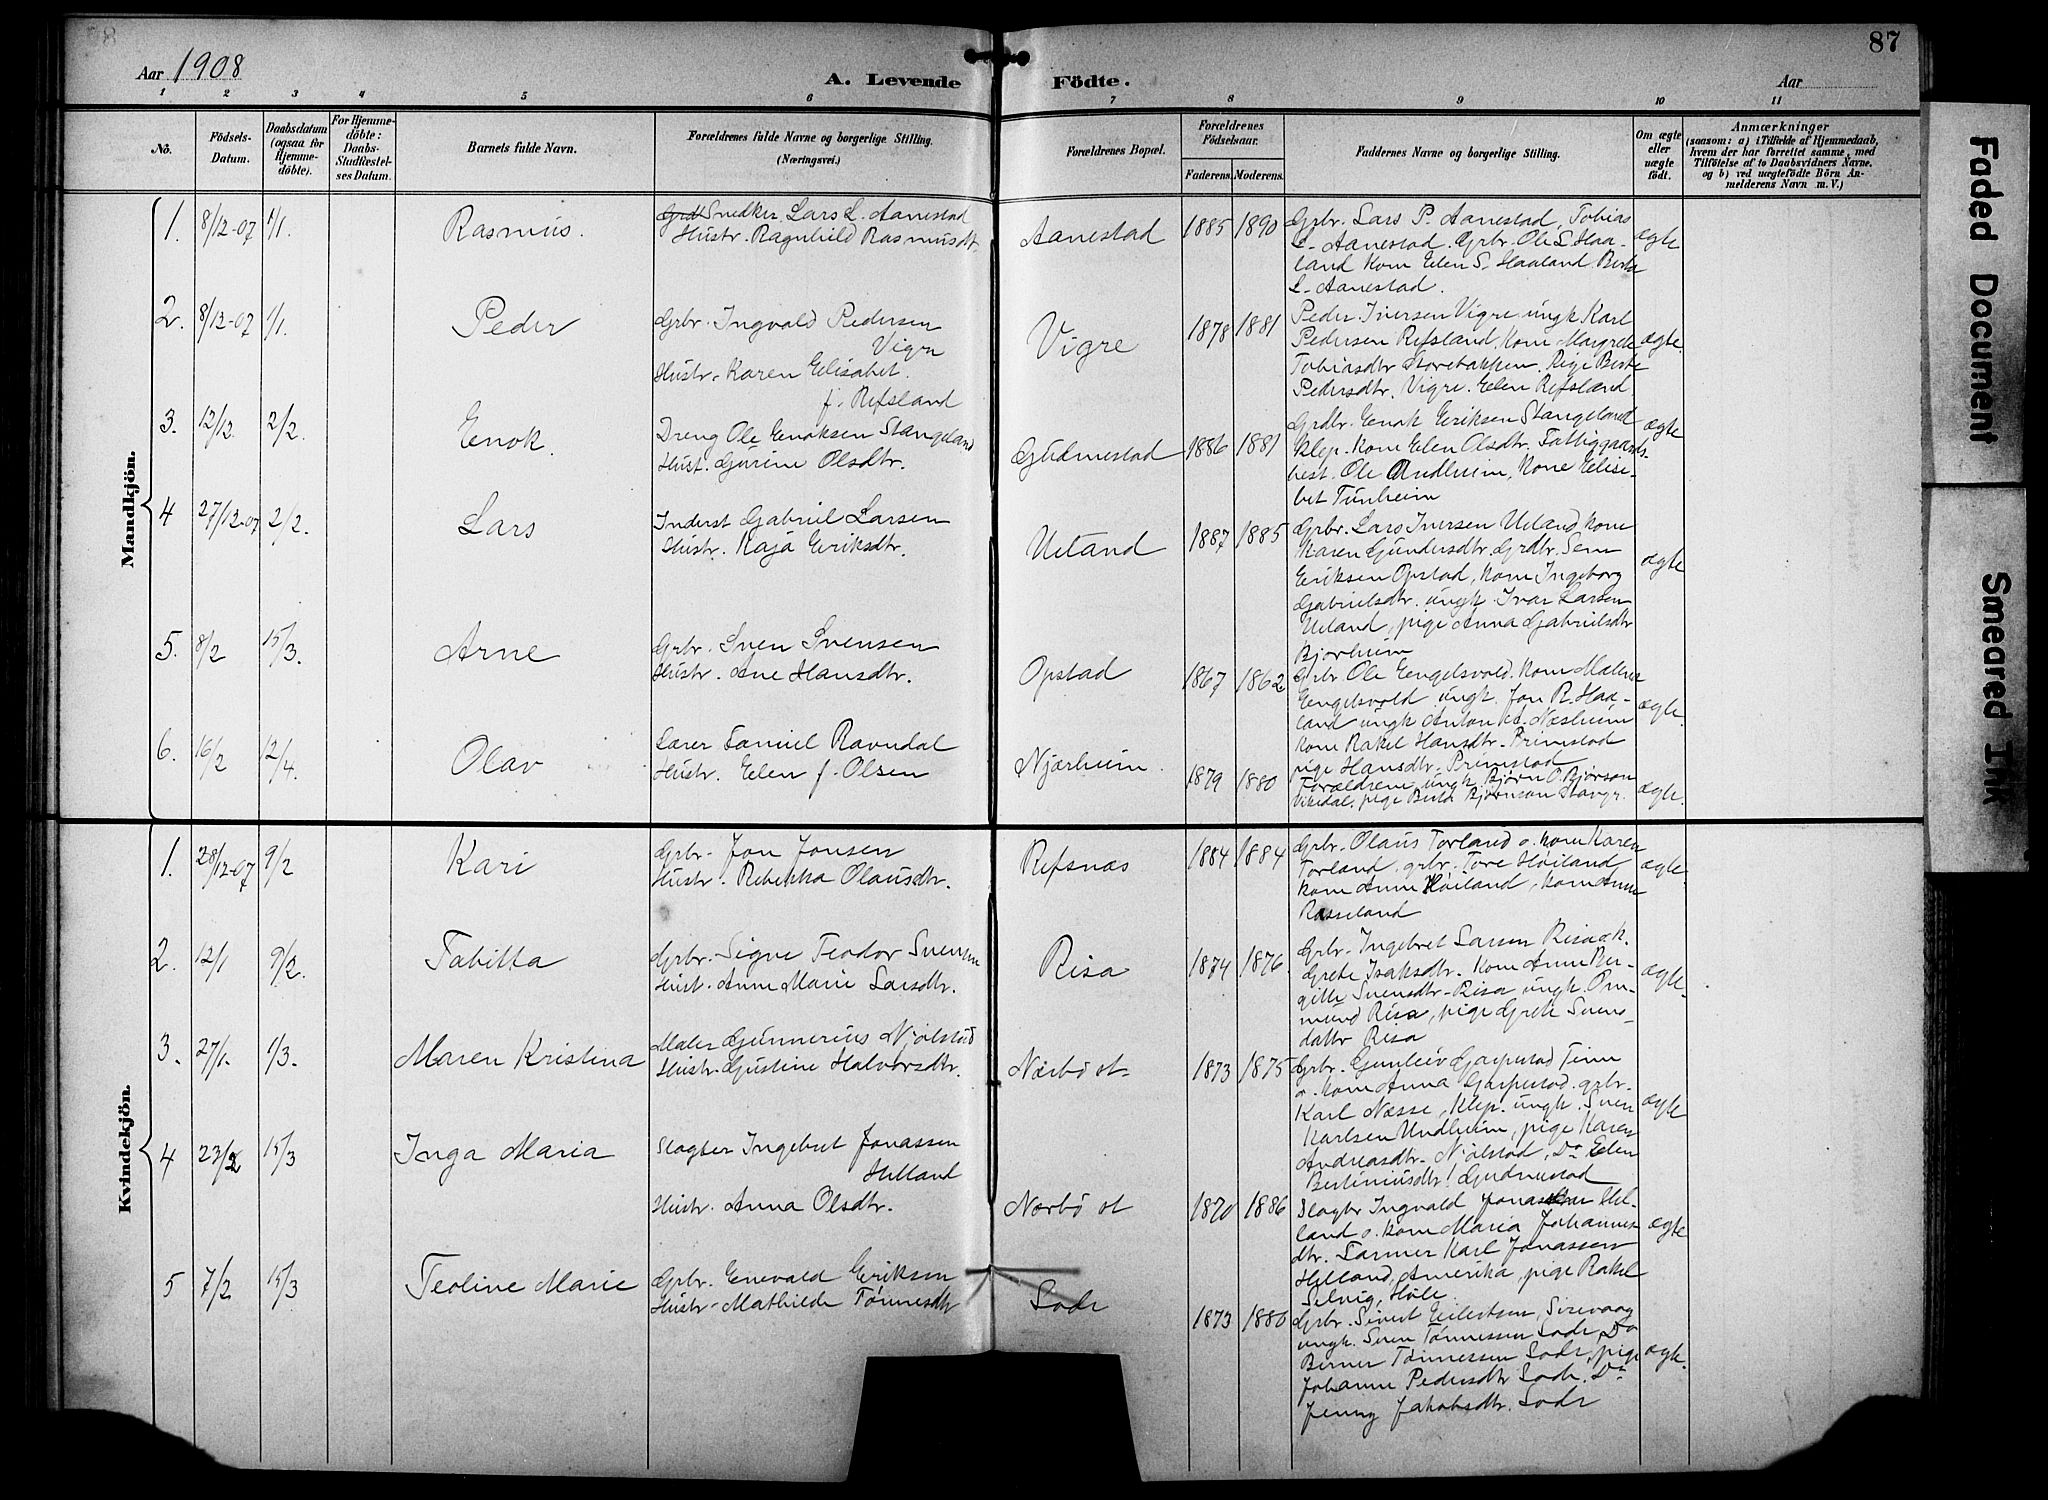 87
Aar 1908
A. Levende Födte.
Aar
1 2 3 4 5 6 7 8 9 10 11
No.
Födsels-Datum.
Daabsdatum (ogsaa för Hjemme-döbte).
For Hjemme-döbte: Daabs-Stadfæstel-ses Datum.
Barnets fulde Navn.
Forældrenes fulde Navne og borgerlige Stilling.
(Næringsvei.)
Forældrenes Bopæl.
Forældrenes Födselsaar.
Faderens. Moderens.
Faddernes Navne og borgerlige Stilling.
Om ægte eller uægte födt.
Anmærkninger
(saasom: a) i Tilfælde af Hjemmedaab, hvem der har forrettet samme, med Tilföielse af to Daabsvidners Navne, og b) ved uægtefödte Börn An-melderens Navn m. V.)
Mandkjön.
1. 8/12-07 1/1. Rasmus.
Snedker Lars L. Aanestad
Hustr. Ragnhild Rasmusdt.
Aanestad 1885 1890
Grbr. Lars P. Aanestad, Tobias
L. Aanestad. Grbr. Ole S. Haa-
land Kone Elen S. Haaland. Berta
L. Aanestad.
ægte
2. 8/12-07 1/1. Peder
Grbr. Ingvald Pedersen
Vigre
Hustr. Karen Elisabet.
f. Refsland
Vigre 1878 1881
Peder Iversen Vigre ungk. Karl
Pedersen Refsland, Kone Margrete
Tobiasdtr. Storebakken. Pige Berte
Pedersdtr. Vigre. Elen Refsland
ægte.
3. 12/12. 2/2. Enok.
Dreng Ole Enoksen Stangeland
Hust. Gurine Olsdtr.
Gudmestad 1886 1881
Grdbr. Enok Eriksen Stangeland
Klep. Kone Elen Olsdtr. Fattiggaards-
best. Ole Undheim, Kone Elisa-
bet Tunheim
ægte
4 27/12-07 2/2. Lars
Inderst Gabriel Larsen
Hustr. Kaja Eriksdtr.
Ueland 1887 1885
Grbr. Lars Iversen Ueland, kone
Karen Gundersdtr. Grdbr. Sem
Eriksen Opstad, kone Ingeborg
Gabrielsdtr. ungk. Ivar Larsen
Ueland, pige Anna Gabrielsdtr
Bjorheim
ægte
5. 8/2 15/3. Arne
Grbr. Sven Svensen
Hustr. Ane Hansdtr.
Opstad 1867 1862
Grbr Ole Engelsvold. Kone Malene
Engelsvold ungk. Jon R. Haa-
land ungk Anton A. Næsheim
kone Rakel Hansdtr. Primstad
pige Hansdtr. Primstad
ægte.
6. 16/2 12/4. Olav
Lærer Samuel Ravndal
Hustr. Elen f. Olsen
Njærheim. 1879 1880
Forældrene, ungk. Bjørn O. Bjørson
Vikedal, pige Berta Bjørnson Stavgr.
ægte.
Kvindekjön.
1. 28/12-07 9/2 Kari
Grbr. Jon Jonsen
Hustr. Rebekka Olausdtr.
Refsnæs 1884 1884
Grbr. Olaus Torland o. kone Karen
Torland, grbr. Tore Høiland
kone Anne Høiland, kone Anne
Rosseland
ægte.
2. 12/1 9/2. Tabitta
Grbr. Sigve Teodor Svensen
Hust. Anne Marie Larsdtr.
Risa 1874 1876.
Grbr. Ingebret Larsen Risa o. k.
Grete Isaksdtr. Kone Anne Ber-
gitte Svensdtr. Risa ungk. Om-
mund Risa, pige Grete Svens-
datter Risa
ægte.
3. 27/1. 1/3. Maren Kristina
Maler Gunnerius Njølstad
Hustr. Gustine Halvorsdtr.
Nærbø st. 1873 1875
Grbr. Gunleiv Gaupestad Time
o. kone Anna Gaupestad. grbr.
Karl Næsse, Klep. ungk. Sven
Karlsen Undheim, pige Karen
Andreasdtr. Njølstad, Do Elen
Bertiniusdtr! Gudmestad
ægte
4 23/2 15/3 Inga Maria
Slagter Ingebret Jonassen
Helland
Hustr. Anna Olsdtr.
Nærbø st 1870 1886
Slagtr Ingvald Jonassen Hel-
land o. kone Maria Johannes-
dtr. Farmer Karl Jonassen
Helland, Amerika, pige Rakel
Selvig, Høle.
ægte
5 7/2 15/3 Teoline Marie
Grbr. Enevald Eriksen
Hustr. Mathilde Tønnesdtr
Lode 1873 1880
Grbr. Sivert Eilertsen, Sirevaag
ungk. Sven Tønnessen Lode, Do
Berner Tønnessen Lode, pige
Johanne Pedersdtr Lode. Do
Jenny Jakobsdtr. Lode
ægte.
Faded Document
Smeared Ink